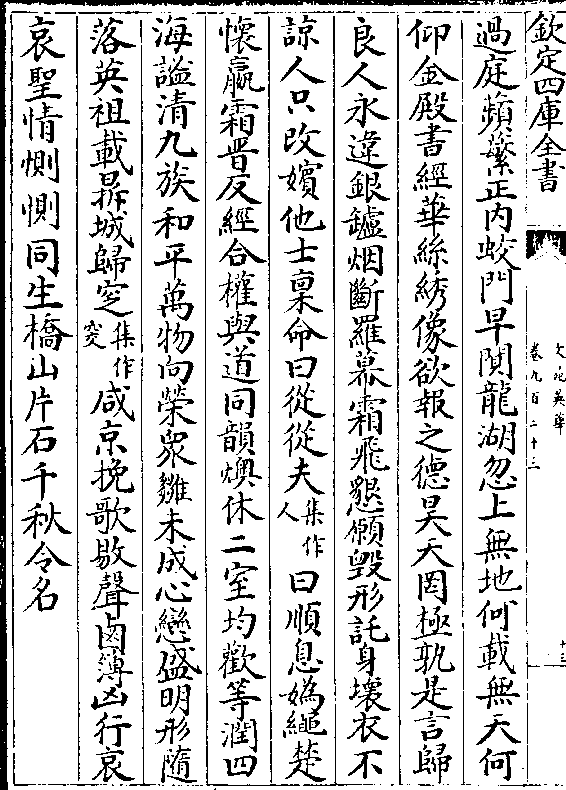 欽定四庫全書
文苑英華
卷九百三十三
十三
過庭蘋蘩正内蛟門早閴龍湖忽上無地何載無天何
仰金殿書經華絲綉像欲報之德昊天罔極孰是言歸
良人永違銀鑪烟斷羅幕霜飛懇願毁形託身壊衣不
諒人只改嬪他士稟命曰從從夫集作人曰順息媯繩楚
懐嬴霜晋反經合權與道同韻燠休二室均歡等潤四
海謐清九族和平萬物向榮衆雛未成心戀盛明形隨
落英祖載昇城歸窆集作窀咸京挽歌敭聲鹵薄凶行哀
哀聖情惻惻同生橋山片石千秋令名